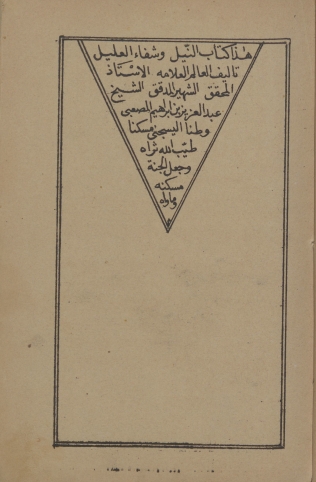 هذا كتاب النيل وشفاء العليل
تاليف العالم العلامه الاستاذ
المحقق الشهير المدقق الشيخ
عبد العزيز بن ابراهيم المصعبي
وطنا اليسجني مسكنا
طيب الله ثراه
وجعل الجنة
مسكنه
وماواه